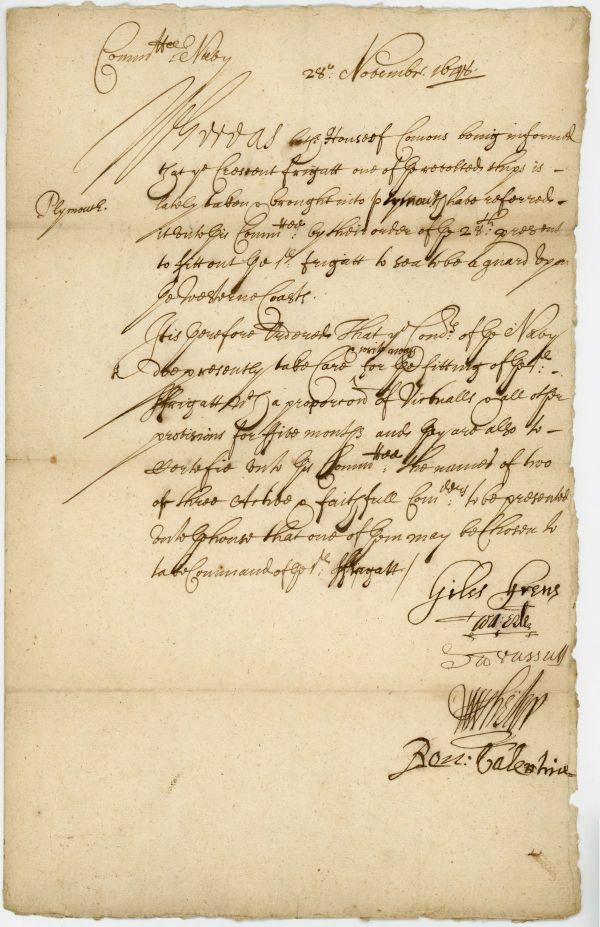 Comm^ttee Navy
28º November. 1648.
Whereas the House of Comons being informed
that ye Crescent frigatt one of ye revolted ships is
lately taken & brought into plymouth have referred
Plymouth.
it unto this Comm^ttee: by their order of ye 28th: present
to fitt out ye sd. frigatt to sea to be a guard upon
ye Westerne Coasts.
It is therefore Ordered That ye Com^rs. of ye Navy
doe presently take care for ye fitting of ye sd.
ffrigatt wth a proporcon of Victualls & all other
provisions for ffive months and they are also to
certefie unto this Comm^ttee: the names of two
or three Active & faithfull Com^ders: to be presented
unto ye house that one of them may be Chosen to
take Command of ye sd. ffrigatt /
Giles Grene
Ben: Valentine